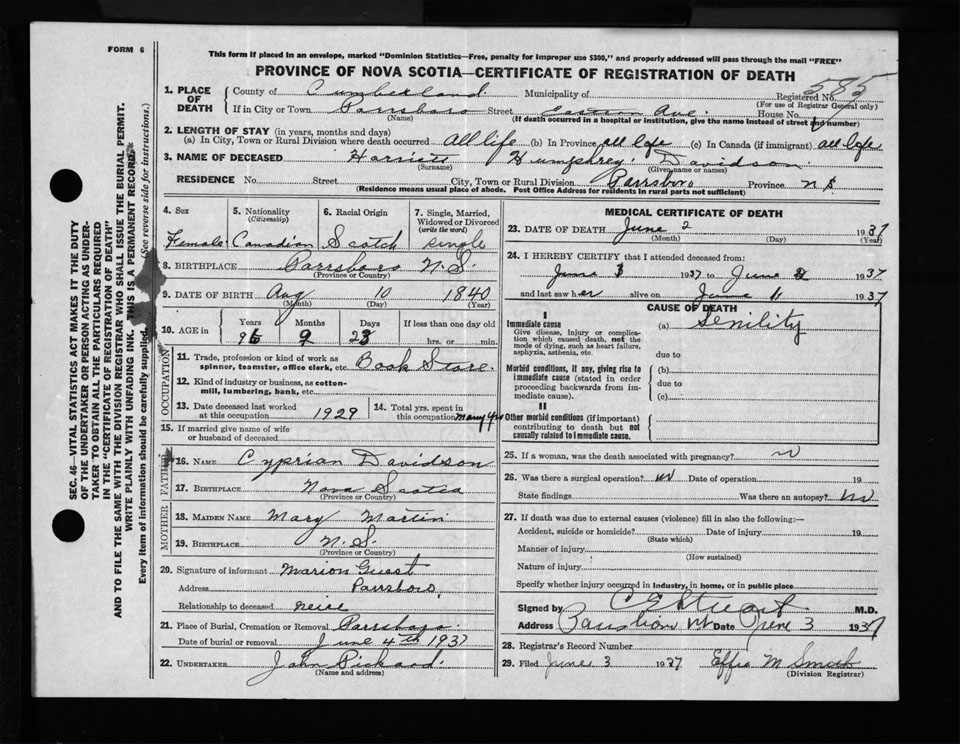 FORM 6
This form if placed in an envelope, marked "Dominion Statistics—Free, penalty for improper use $300," and properly addressed will pass through the mail "FREE"
PROVINCE OF NOVA SCOTIA—CERTIFICATE OF REGISTRATION OF DEATH
585
1. PLACE OF DEATH County of Cumberland Municipality of Registered No.
(For use of Registrar General only)
If in City or Town Parrsboro Street Eastern Ave. House No.
(Name) (If death occurred in a hospital or institution, give the name instead of street & number)
2. LENGTH OF STAY (in years, months and days)
(a) In City, Town or Rural Division where death occurred All life (b) In Province all life (c) In Canada (if immigrant) all life
3. NAME OF DECEASED Harriett Humphrey Davidson
(Surname) (Given name or names)
RESIDENCE No. Street City, Town or Rural Division Parrsboro Province N S
(Residence means usual place of abode. Post Office Address for residents in rural parts not sufficient)
4. Sex 5. Nationality (Citizenship) 6. Racial Origin 7. Single, Married, Widowed or Divorced (write the word)
Female Canadian Scotch single
8. BIRTHPLACE Parrsboro N.S.
(Province or Country)
9. DATE OF BIRTH Aug 10 1840
(Month) (Day) (Year)
10. AGE in Years Months Days If less than one day old
96 9 23 hrs. or min.
OCCUPATION
11. Trade, profession or kind of work as spinner, teamster, office clerk, etc. Book Store
12. Kind of industry or business, as cotton-mill, lumbering, bank, etc.
13. Date deceased last worked at this occupation 1929 14. Total yrs. spent in this occupation many yrs
15. If married give name of wife or husband of deceased
FATHER
16. NAME Cyprian Davidson
17. BIRTHPLACE Nova Scotia
(Province or Country)
MOTHER
18. MAIDEN NAME Mary Martin
19. BIRTHPLACE N.S.
(Province or Country)
20. Signature of informant Marion Guest
Address Parrsboro,
Relationship to deceased neice
21. Place of Burial, Cremation or Removal Parrsboro
Date of burial or removal June 4th 1937
22. UNDERTAKER John Pickard
(Name and address)
MEDICAL CERTIFICATE OF DEATH
23. DATE OF DEATH June 2 1937
(Month) (Day) (Year)
24. I HEREBY CERTIFY that I attended deceased from:
June 1937 to June 2 1937
and last saw her alive on June 1937
CAUSE OF DEATH
I
Immediate cause (a) Senility
Give disease, injury or complication which caused death, not the mode of dying, such as heart failure, asphyxia, asthenia, etc.
due to
Morbid conditions, if any, giving rise to immediate cause (stated in order proceeding backwards from immediate cause).
(b)
due to
(c)
II
Other morbid conditions (if important) contributing to death but not causally related to immediate cause.
25. If a woman, was the death associated with pregnancy?
26. Was there a surgical operation? no Date of operation 19
State findings Was there an autopsy? no
27. If death was due to external causes (violence) fill in also the following:—
Accident, suicide or homicide? Date of injury 19
(State which)
Manner of injury
(How sustained)
Nature of injury
Specify whether injury occurred in industry, in home, or in public place
Signed by M.D.
Address Date June 3 1937
28. Registrar's Record Number
29. Filed June 3 1937 Effie M Smith
(Division Registrar)
SEC. 46—VITAL STATISTICS ACT MAKES IT THE DUTY
OF THE UNDERTAKER OR PERSON ACTING AS UNDER-
TAKER TO OBTAIN ALL THE PARTICULARS REQUIRED
IN THE "CERTIFICATE OF REGISTRATION OF DEATH"
AND TO FILE THE SAME WITH THE DIVISION REGISTRAR WHO SHALL ISSUE THE BURIAL PERMIT.
WRITE PLAINLY WITH UNFADING INK. THIS IS A PERMANENT RECORD.
Every item of information should be carefully supplied. (See reverse side for instructions.)